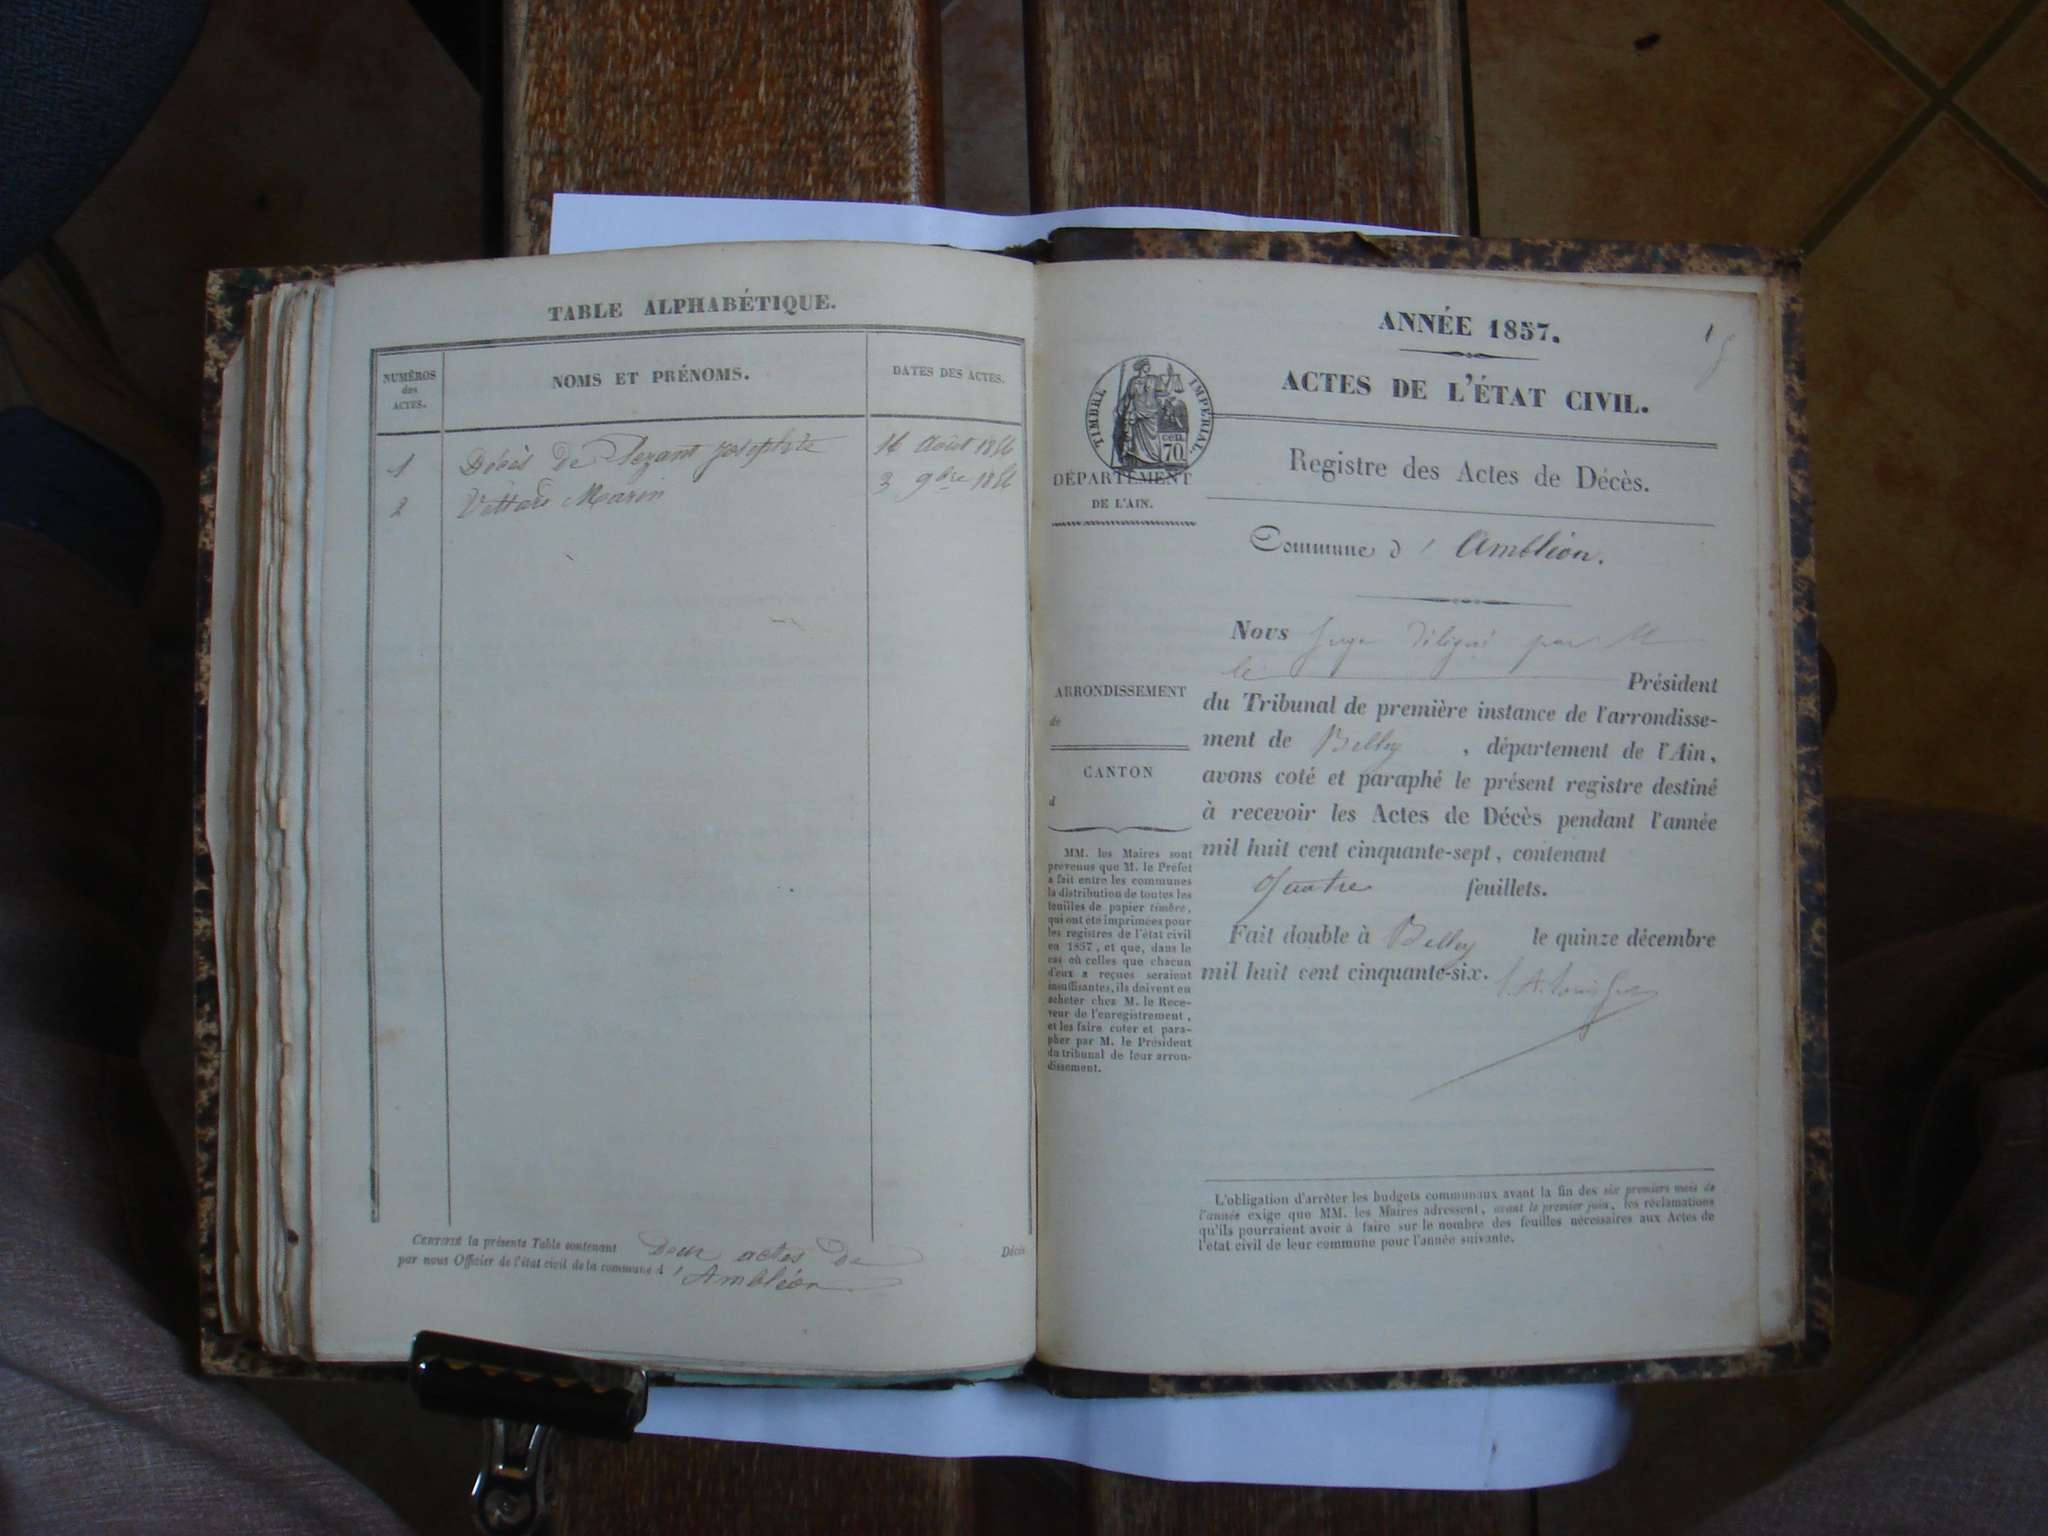 TABLE ALPHABÉTIQUE.
NUMÉROS
des
ACTES.
NOMS ET PRÉNOMS.
DATES DES ACTES.
1 Décès de Pezant Josephte 14 Août 1856
2 Vettard Marin 3 9bre 1856
CERTIFIÉ la présente Table contenant Deux actes de Décès
par nous Officier de l'état civil de la commune d ' Ambléon
ANNÉE 1857.
1
ACTES DE L'ÉTAT CIVIL.
TIMBRE IMPERIAL.
cen.
70.
DÉPARTEMENT
DE L'AIN.
Registre des Actes de Décès.
Commune d ' Ambléon.
Nous Juge délégué par M
le Président
du Tribunal de première instance de l'arrondisse-
ment de Belley , département de l'Ain,
avons coté et paraphé le présent registre destiné
à recevoir les Actes de Décès pendant l'année
mil huit cent cinquante-sept, contenant
quatre feuillets.
Fait double à Belley le quinze décembre
mil huit cent cinquante-six.
ARRONDISSEMENT
de
CANTON
d
MM. les Maires sont
prévenus que M. le Préfet
a fait entre les communes
la distribution de toutes les
feuilles de papier timbré,
qui ont été imprimées pour
les registres de l'état civil
en 1857, et que, dans le
cas où celles que chacun
d'eux a reçues seraient
insuffisantes, ils doivent en
acheter chez M. le Rece-
veur de l'enregistrement,
et les faire coter et para-
pher par M. le Président
du tribunal de leur arron-
dissement.
L'obligation d'arrêter les budgets communaux avant la fin des six premiers mois de
l'année exige que MM. les Maires adressent, avant le premier juin, les réclamations
qu'ils pourraient avoir à faire sur le nombre des feuilles nécessaires aux Actes de
l'état civil de leur commune pour l'année suivante.